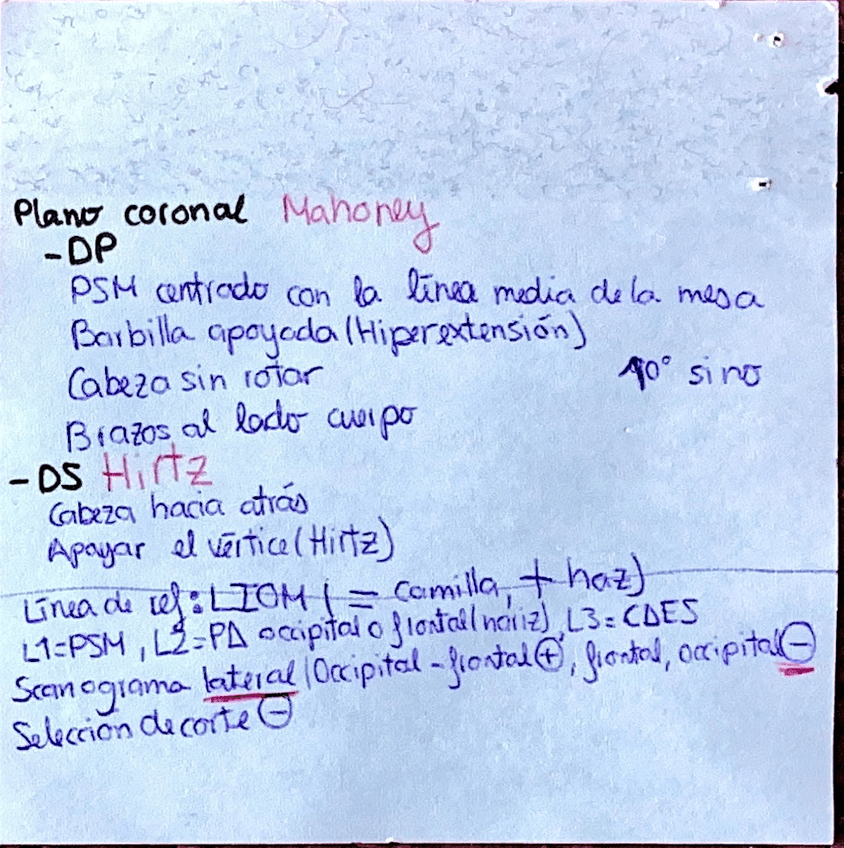 Plano coronal Mahoney
-DP
PSM centrado con la línea media de la mesa
Barbilla apoyada (Hiperextensión)
Cabeza sin rotar 10° sino
Brazos al lado cuerpo
-DS Hirtz
Cabeza hacia atrás
Apoyar el vértice (Hirtz)
Línea de ref: LIOM (= camilla, + haz)
L1=PSM, L2=PA occipital o frontal (nariz), L3=CAES
Scanograma lateral (Occipital-frontal ⊕, frontal, occipital ⊖
Selección de corte ⊖